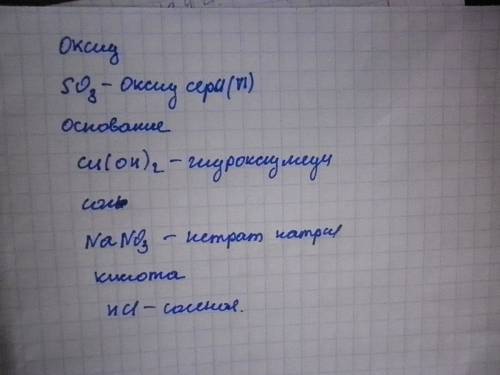 Оксид
SO3 - Оксид серы (VI)
Основание
Cu(OH)2 - гидроксид меди
соль
NaNO3 - нетрат натрия
кислота
HCl - соленая.